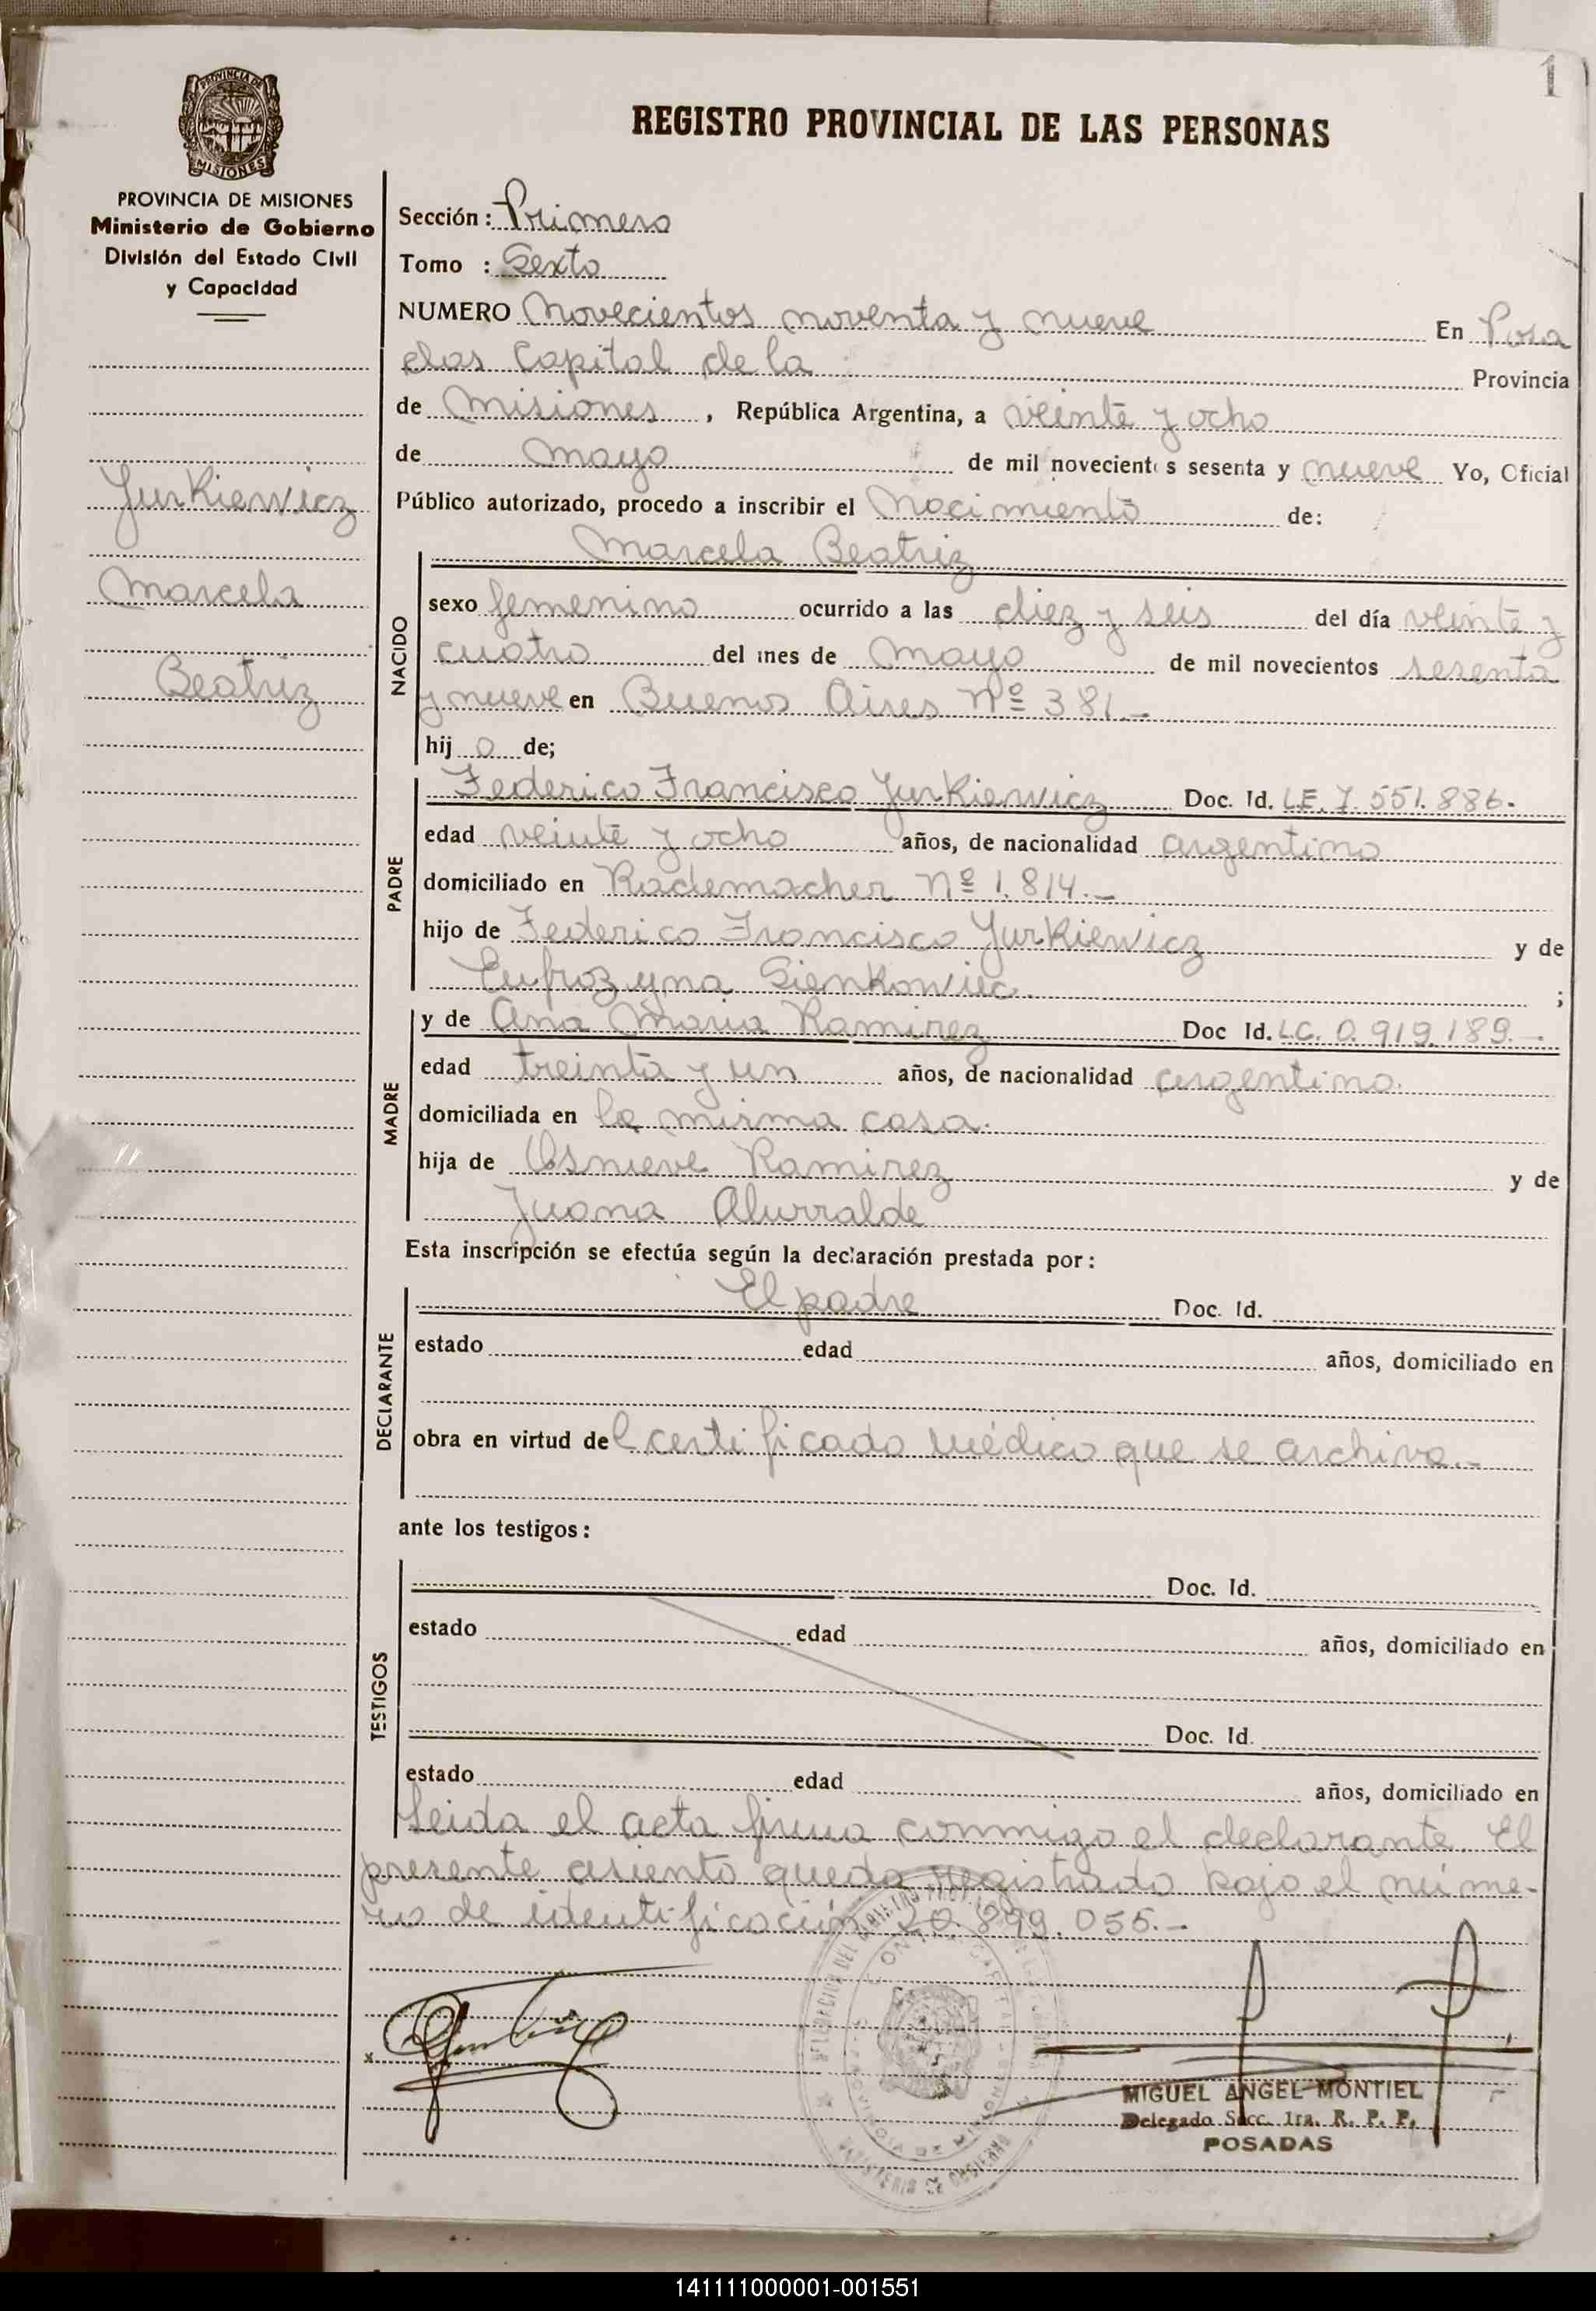 1
PROVINCIA DE
MISIONES
REGISTRO PROVINCIAL DE LAS PERSONAS
PROVINCIA DE MISIONES
Ministerio de Gobierno
División del Estado Civil
y Capacidad
Yurkiewicz
Marcela
Beatriz
Sección: Primera
Tomo : Sexto
NUMERO Novecientos noventa y nueve En Posa
das Capital de la Provincia
de Misiones, República Argentina, a veinte y ocho
de Mayo de mil novecientos sesenta y nueve Yo, Oficial
Público autorizado, procedo a inscribir el Nacimiento de:
NACIDO
Marcela Beatriz
sexo femenino ocurrido a las diez y seis del día veinte y
cuatro del mes de Mayo de mil novecientos sesenta
y nueve en Buenos Aires Nº 381.-
hij a de;
PADRE
Federico Francisco Yurkiewicz Doc. Id. L.E. 7.551.886.
edad veinte y ocho años, de nacionalidad argentina
domiciliado en Rademacher Nº 1.814.-
hijo de Federico Francisco Yurkiewicz y de
Eufrozyna Sienkowiec. ;
MADRE
y de Ana Maria Ramirez Doc Id. L.C. 0.919.189.-
edad treinta y un años, de nacionalidad argentina.
domiciliada en la misma casa.
hija de Osnieve Ramirez y de
Juana Alurralde
Esta inscripción se efectúa según la declaración prestada por:
DECLARANTE
El padre Doc. Id.
estado edad años, domiciliado en
obra en virtud del certificado médico que se archiva.-
ante los testigos:
TESTIGOS
Doc. Id.
estado edad años, domiciliado en
Doc. Id.
estado edad años, domiciliado en
Leida el acta firma conmigo el declarante. El
presente asiento queda registrado bajo el núme-
ro de identificación 20.899.055.-
x
MIGUEL ANGEL MONTIEL
Delegado Secc. 1ra. R. P. P.
POSADAS
141111000001-001551